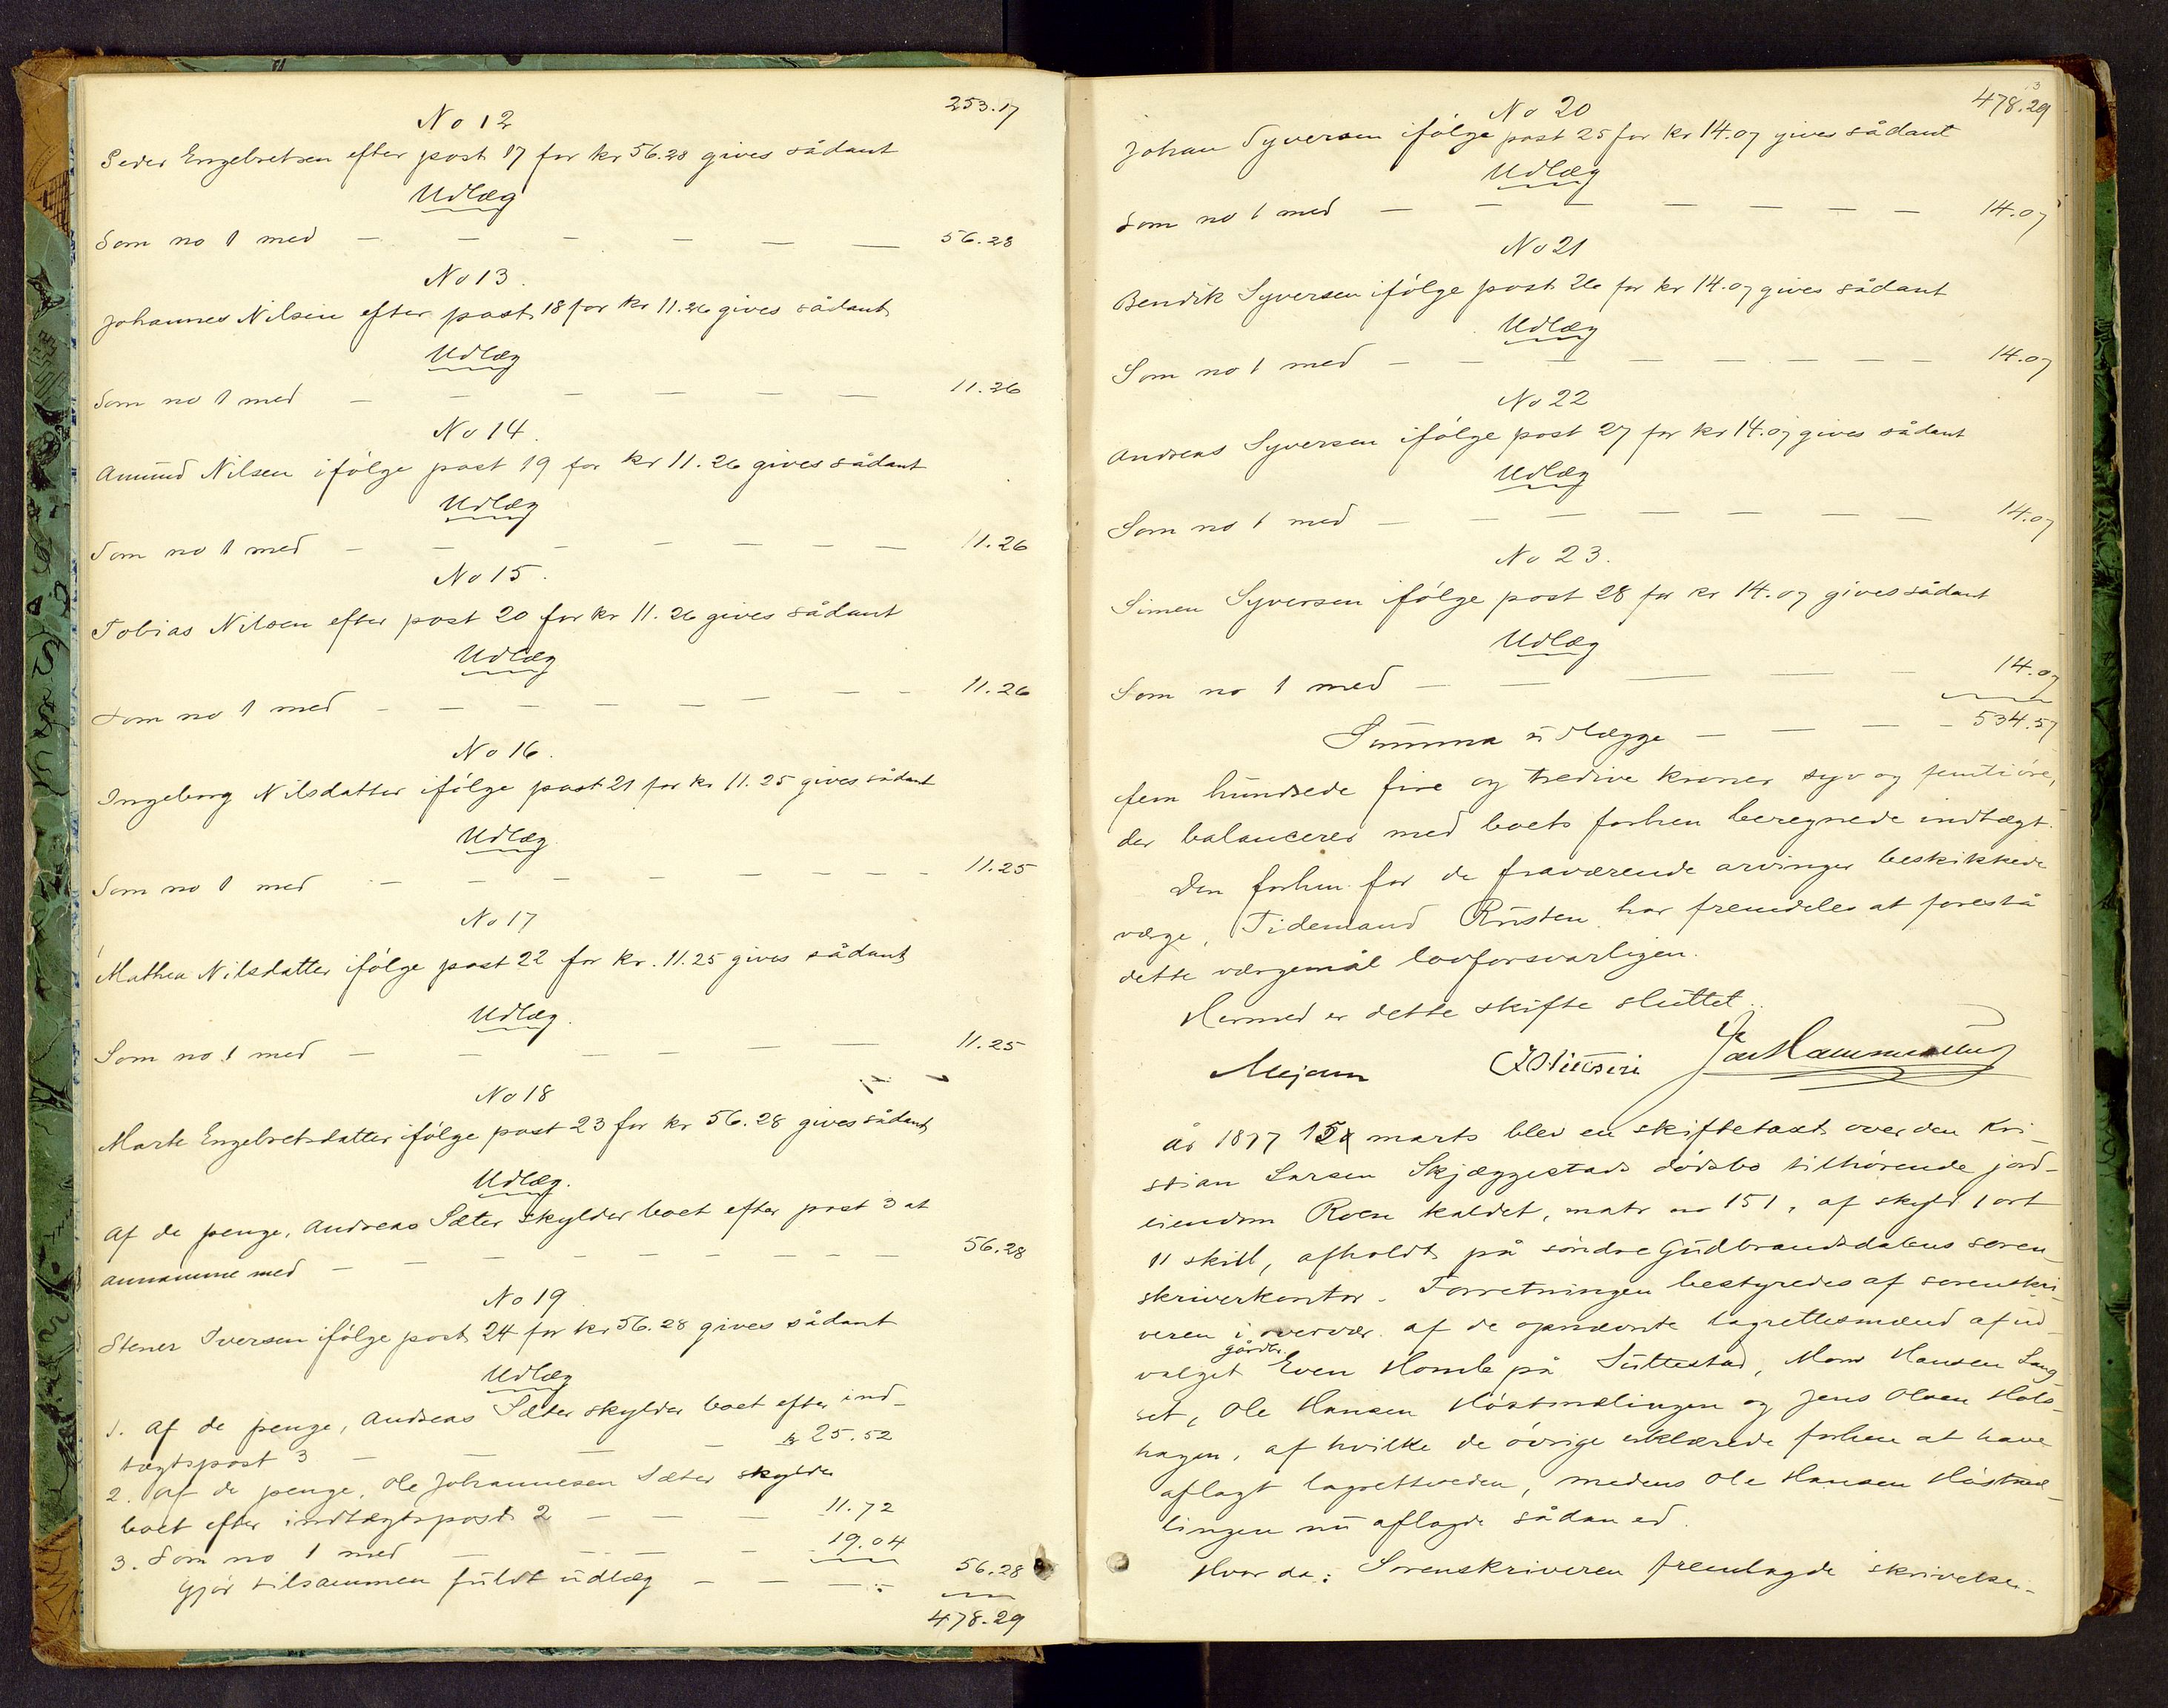 253.17
No 12
Peder Engebretsen efter post 17 for kr 56.28 gives sådant
Udlæg
Som no 1 med — — — — — — 56.28
No 13.
Johannes Nilsen efter post 18 for kr 11.26 gives sådant
Udlæg
Som no 1 med — — — — — — 11.26
No 14.
Amund Nilsen ifølge post 19 for kr 11.26 gives sådant
Udlæg
Som no 1 med — — — — — — — 11.26
No 15.
Tobias Nilsen efter post 20 for kr 11.26 gives sådant
Udlæg
Som no 1 med — — — — — — — — 11.26
No 16.
Ingeborg Nilsdatter ifølge post 21 for kr 11.25 gives sådant
Udlæg
Som no 1 med — — — — — — — — 11.25
No 17
Mathea Nilsdatter ifølge post 22 for kr. 11.25 gives sådant
Udlæg.
Som no 1 med — — — — — — 11.25
No 18
Marte Engebretsdatter ifølge post 23 for kr 56.28 gives sådant
Udlæg.
Af de penge, Andreas Sæter skylder boet efter post 3 at
annamme med — — — — — — — — 56.28
No 19
Stener Iversen ifølge post 24 for kr 56.28 gives sådant
Udlæg
1. Af de penge, Andreas Sæter skylder boet efter ind-
tægtspost 3 — — — — kr 25.52
2. Af de penge, Ole Johannesen Sæter skylder
boet efter indtægtspost 2 — — — 11.72
3. Som no 1 med — — — — 19.04
Gjør tilsammen fuldt udlæg — — — 56.28
478.29
478.29
No 20
Johan Syversen ifølge post 25 for kr 14.07 gives sådant
Udlæg
Som no 1 med — — — — — — — 14.07
No 21
Bendik Syversen ifølge post 26 for kr 14.07 gives sådant
Udlæg
Som no 1 med — — — — — — — — 14.07
No 22
Andreas Syversen ifølge post 27 for kr 14.07 gives sådant
Udlæg
Som no 1 med — — — — — — — 14.07
No 23.
Simen Syversen ifølge post 28 for kr 14.07 gives sådant
Udlæg
Som no 1 med — — — — — 14.07
Summa udlægge — — — — 534.57
fem hundrede fire og tredive kroner syv og femti øre,
der balancerer med boets forhen beregnede indtægt.
Den forhen for de fraværende arvinger beskikkede
værge, Tidemand Rusten har fremdeles at forestå
dette værgemål lovforsvarligen.
Hermed er dette skifte sluttet.
Mejann
År 1877 15 marts blev en skiftetaxt over den Kri-
stian Larsen Skjæggestads dødsbo tilhørende jord-
eiendom Roen kaldet, matr no 151, af skyld 1 ort
11 skill, afholdt på søndre Gudbrandsdalens soren-
skriverkontor. Forretningen bestyredes af sorenskri-
veren i overvær. af de opnævnte lagrettesmænd af ud-
gårdbr.
valget Even Homle på Suttestad, Mons Hansen Lang-
set, Ole Hansen Høstmælingen og Jens Olsen Hols-
hagen, af hvilke de øvrige erklærede forhen at have
aflagt lagretteseden, medens Ole Hansen Høstmæ-
lingen nu aflagde sådan ed.
Hvor da: Sorenskriveren fremlagde skrivelse-